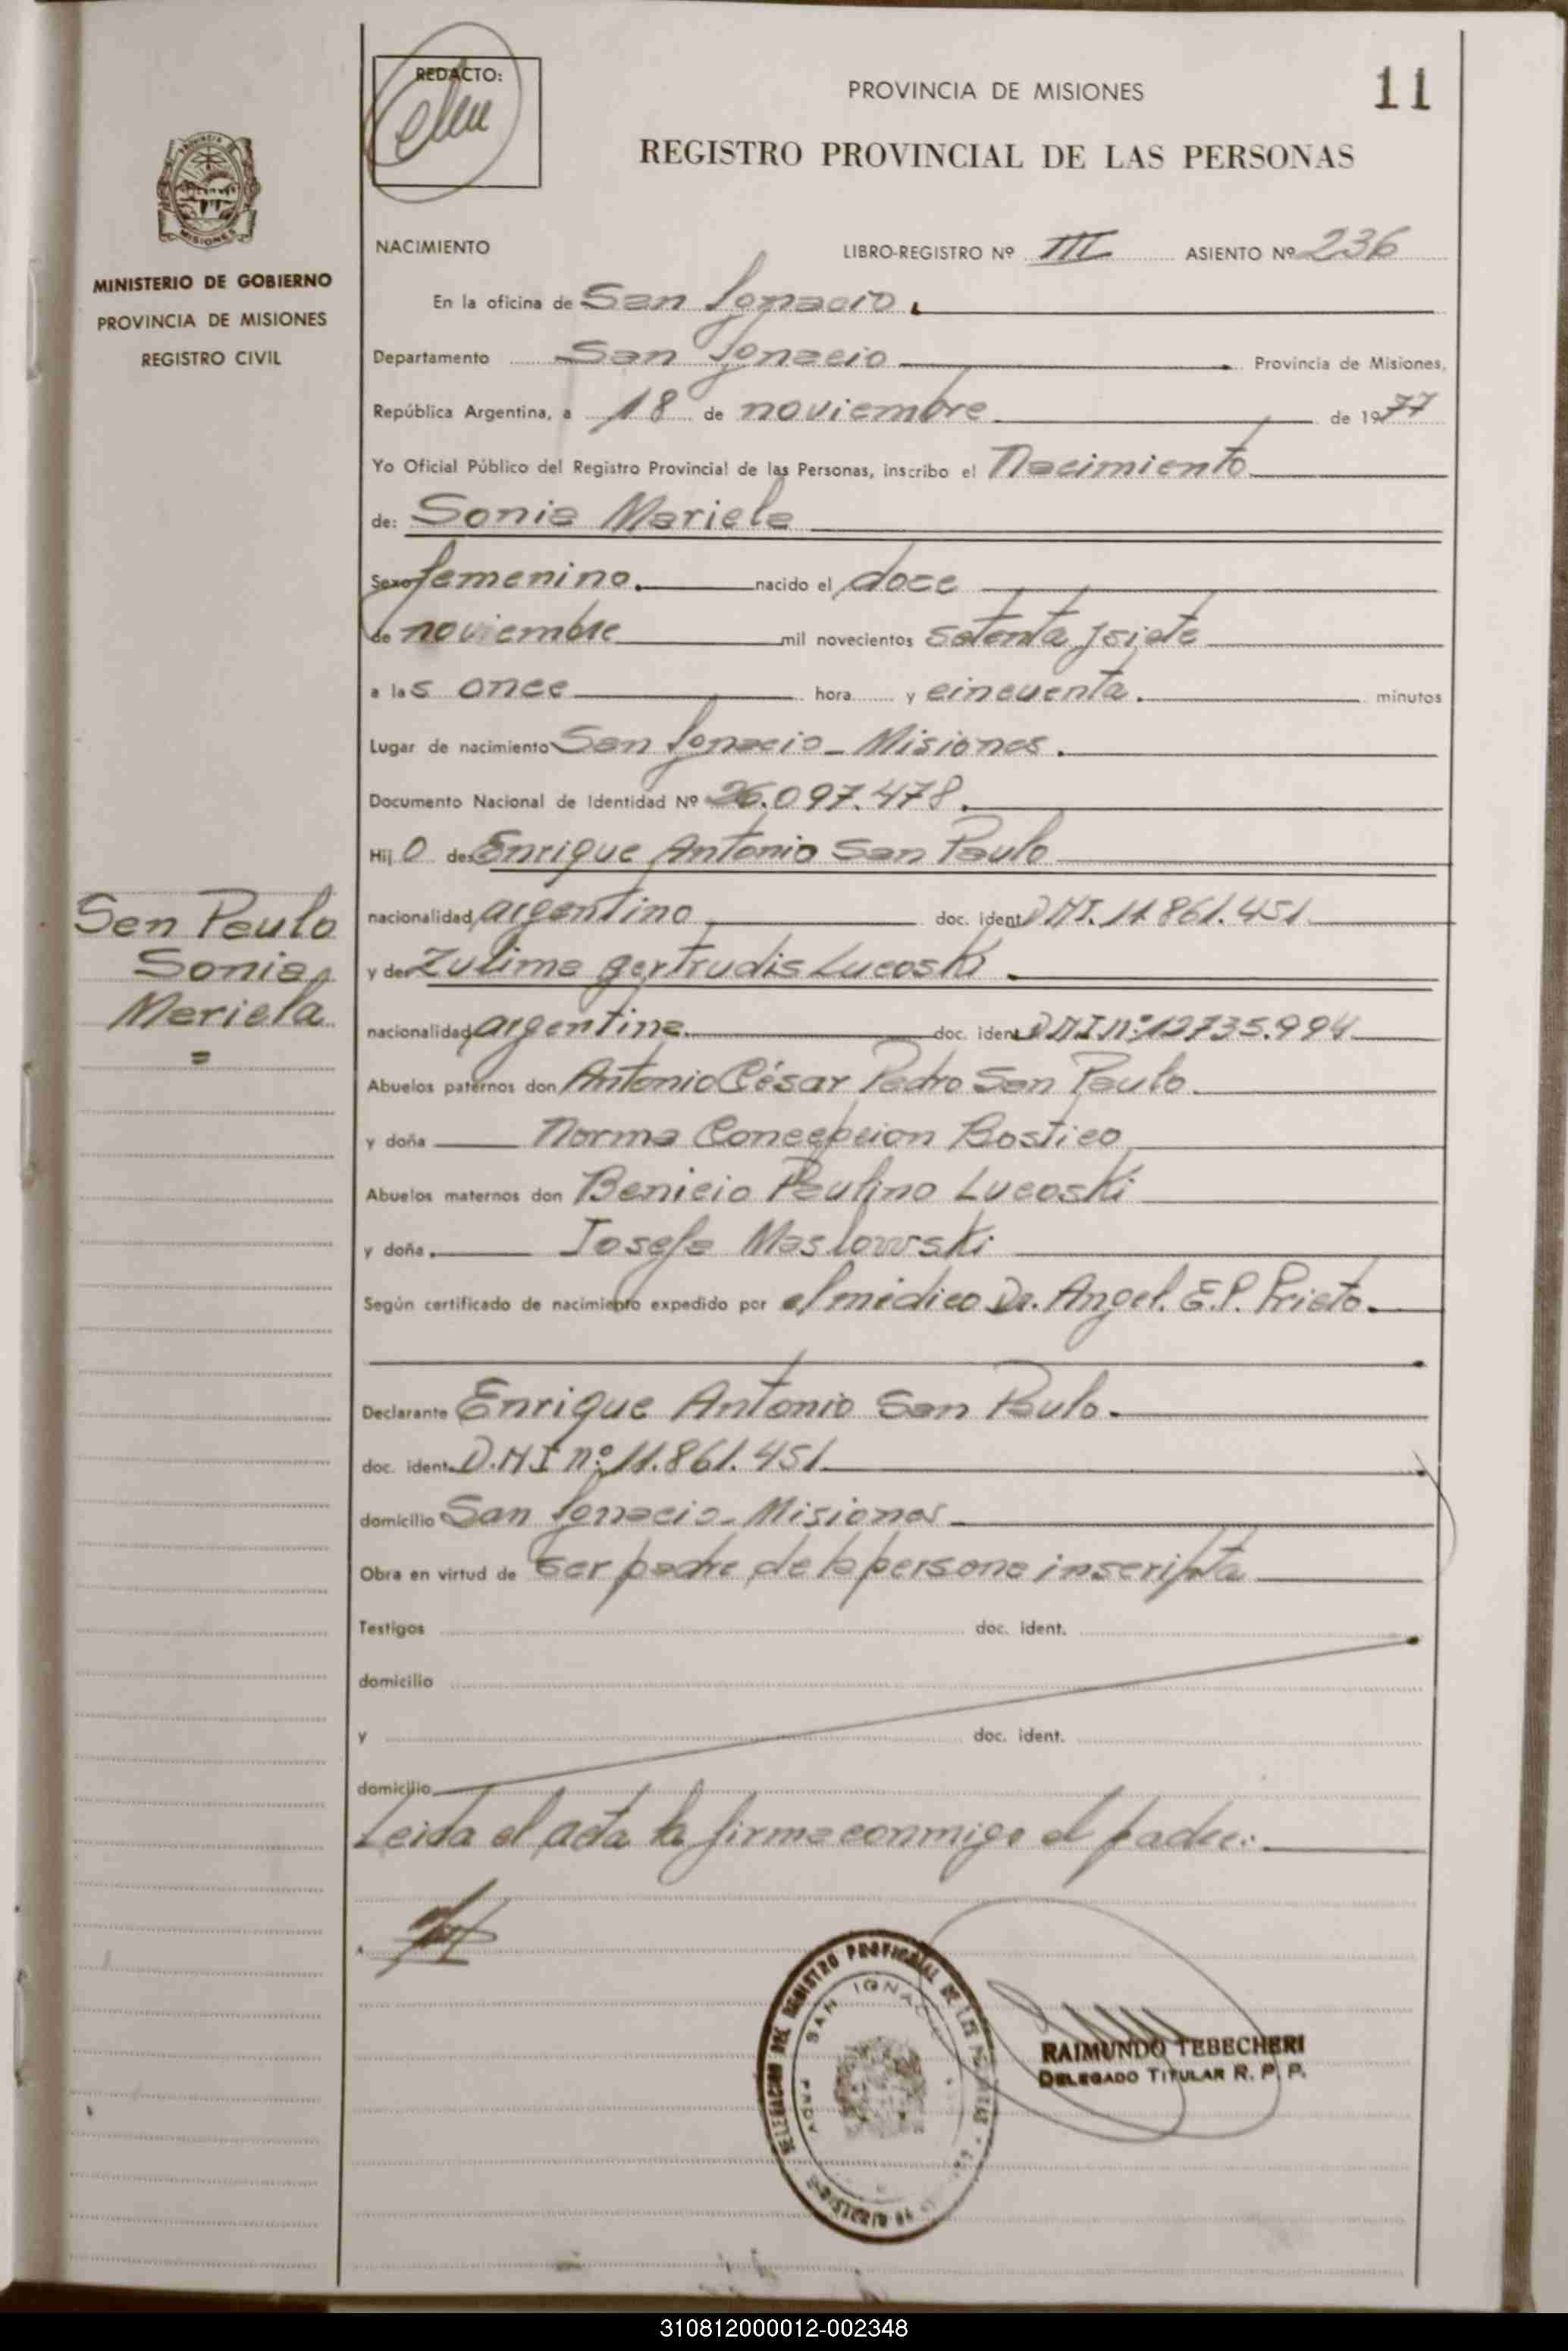 REDACTO:
PROVINCIA DE MISIONES
11
REGISTRO PROVINCIAL DE LAS PERSONAS
MINISTERIO DE GOBIERNO
PROVINCIA DE MISIONES
REGISTRO CIVIL
NACIMIENTO LIBRO-REGISTRO Nº III ASIENTO Nº 236
En la oficina de San Ignacio.
Departamento San Ignacio Provincia de Misiones,
República Argentina, a 18 de noviembre de 1977
Yo Oficial Público del Registro Provincial de las Personas, inscribo el Nacimiento
de: Sonia Mariela
Sexo femenino. nacido el doce
de noviembre mil novecientos setenta y siete
a las once hora y cincuenta. minutos
Lugar de nacimiento San Ignacio - Misiones.
Documento Nacional de Identidad Nº 26.097.478.
Hij o de: Enrique Antonio San Paulo
San Paulo
Sonia
Mariela
=
nacionalidad argentino doc. ident. DNI. 11.861.451
y de: Zulima gertrudis Lucoski.
nacionalidad argentina doc. ident. DNI nº 12735.994
Abuelos paternos don Antonio César Pedro San Paulo
y doña Norma Concepcion Bostico
Abuelos maternos don Benicio Paulino Lucoski
y doña Josefa Maslowski
Según certificado de nacimiento expedido por el médico Dr. Angel. E.P. Prieto.
Declarante Enrique Antonio San Paulo.
doc. ident. D.N.I nº: 11.861.451
domicilio San Ignacio - Misiones
Obra en virtud de ser padre de la persona inscripta
Testigos doc. ident.
domicilio
y doc. ident.
domicilio
Leida el acta la firma conmigo el padre:
DELEGACION DEL REGISTRO PROVINCIAL DE LAS PERSONAS
SAN IGNACIO
RAIMUNDO TEBECHERI
DELEGADO TITULAR R. P. P.
310812000012-002348